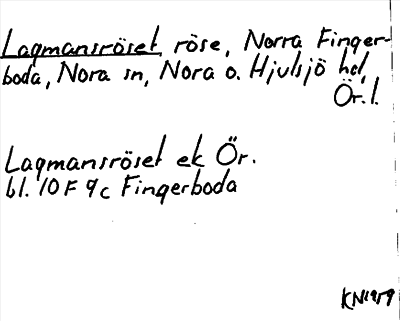 Lagmansröset, röse, Norra Finger-
boda, Nora sn, Nora o. Hjulsjö hd,
Ör. l.
Lagmansröset ek Ör.
bl. 10 F 9c Fingerboda
KN1959